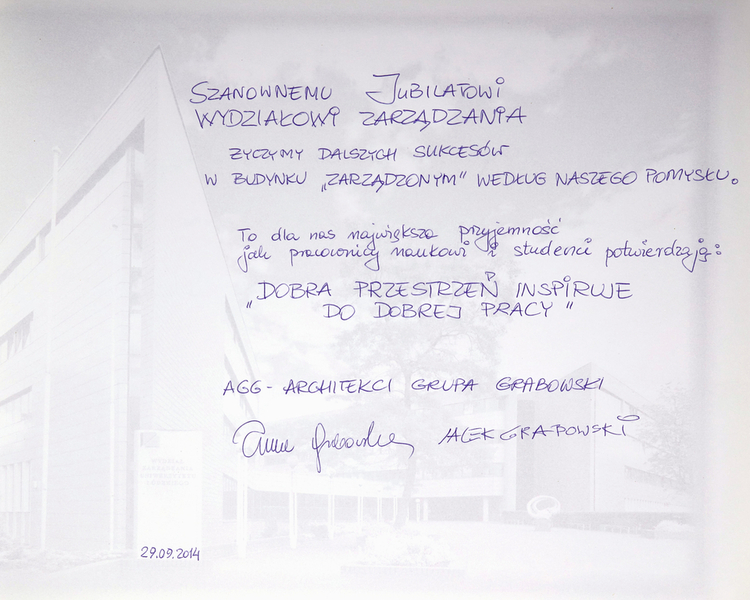 SZANOWNEMU JUBILATOWI
WYDZIAŁOWI ZARZĄDZANIA
ŻYCZYMY DALSZYCH SUKCESÓW
W BUDYNKU „ZARZĄDZONYM" WEDŁUG NASZEGO POMYSŁU.
To dla nas największa przyjemność
jak pracownicy naukowi i studenci potwierdzają:
„DOBRA PRZESTRZEŃ INSPIRUJE
DO DOBREJ PRACY"
AGG - ARCHITEKCI GRUPA GRABOWSKI
Anna Grabowska, JACEK GRABOWSKI
29.09.2014